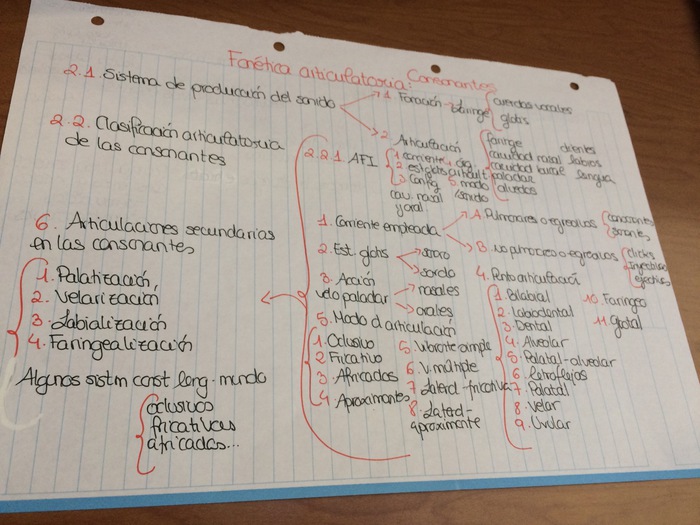 Fonética articulatoria: Consonantes
2.1. Sistema de producción del sonido
1 Fonación - laringe
cuerdas vocales
glotis
2. Articulación
faringe
cavidad nasal
cavidad bucal
paladar
alveolos
dientes
labios
lengua
2.2. Clasificación articulatoria
de las consonantes
2.2.1 AFI
1 corriente
2 est glotis
3 Config
cav. nasal
y oral
4 lug. articult
5. modo
sonido
1. Corriente empleada
A. Pulmonares o egresivos
consonantes
sonantes
B. No pulmonares o egresivos
clicks
inyectivas
eyectivas
2. Est. glotis
sonoro
sordo
3. Acción
velo paladar
nasales
orales
4. Punto articulación
1. Bilabial
2. Labiodental
3. Dental
4. Alveolar
5. Palatal-alveolar
6. Retroflejas
7. Palatal
8. Velar
9. Uvular
10. Faríngea
11. Glotal
5. Modo d articulación
1. Oclusivo
2 Fricativo
3. Africados
4 Aproximantes
5. Vibrante simple
6. V. múltiple
7. Lateral-fricativa
8. Lateral-
aproximante
6. Articulaciones secundarias
en las consonantes
1. Palatización
2. Velarización
3. Labialización
4. Faringealización
Algunos sistm const leng. mundo
oclusivos
fricativas
africadas...